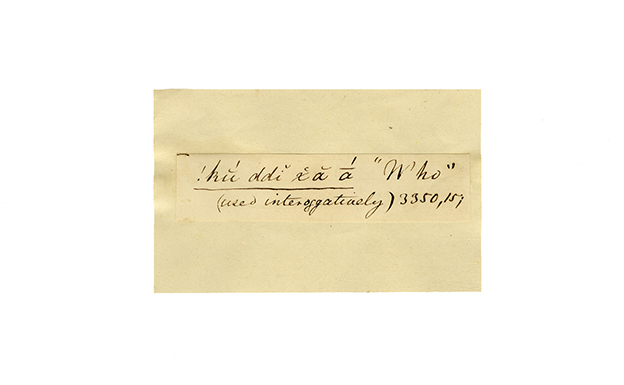 !kú̆ ddĭ x̌ă ā́ "Who"
(used interoggatively) 3350,157